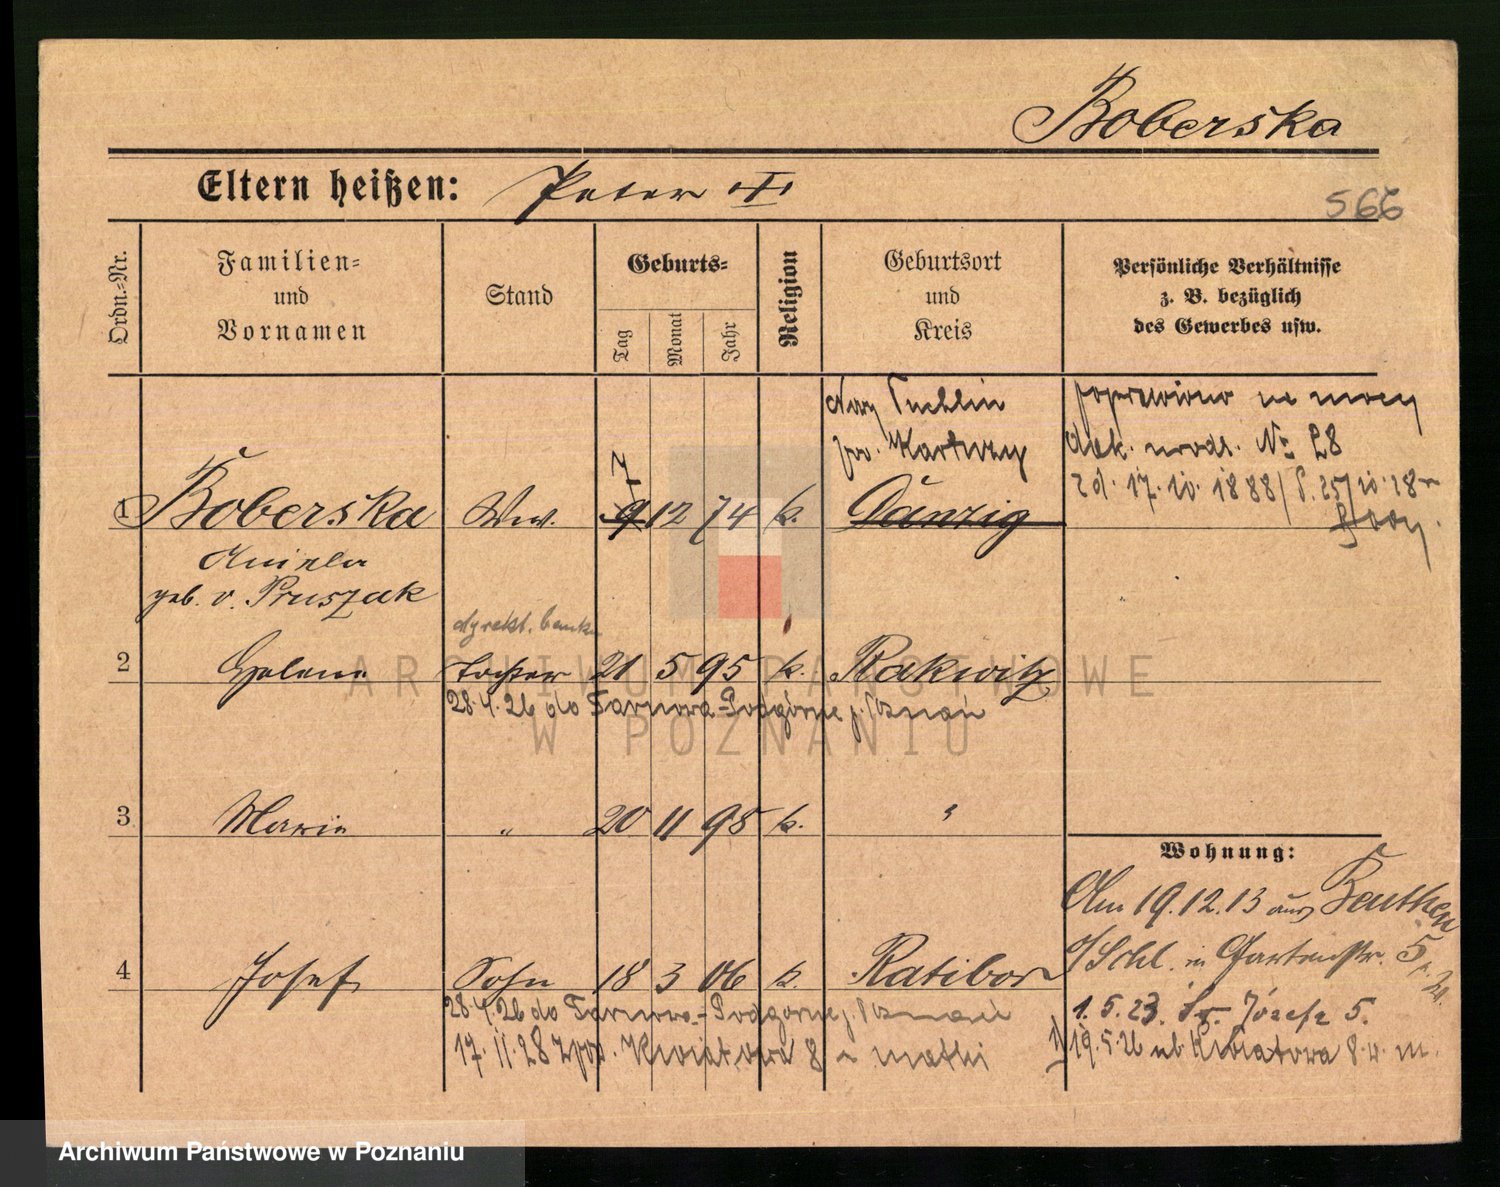 Boberska
Eltern heißen: Peter
566
Ordn.-Nr.
Familien-
und
Vornamen
Stand
Geburts-
Tag
Monat
Jahr
Religion
Geburtsort
und
Kreis
Persönliche Verhältnisse
z. B. bezüglich
des Gewerbes usw.
Nowy Tuchlin
pow. Kartuzy
poprawiono na mocy
akt. urodz. № 28
z d. 17.10.1888
1 Boberska Ww. 7 9 12 74 k. Danzig
Aniela
geb. v. Pruszak
dyrekt. banku
2 Helene Tochter 21 5 95 k. Rakwitz
28.4.26 do Tarnowa-Podgórne p. Poznań
3 Marie " 20 11 98 k. "
Wohnung:
Am 19.12.13 aus Beuthen
O/Schl. in Gartenstr. 5
4 Josef Sohn 18 3 06 k. Ratibor
28.4.26 do Tarnowo-Podgórne p. Poznań
1.5.23. Św. Józefa 5.
17.11.28 zpow. Kwiatowa 8 u matki
19.5.26 ul. Kwiatowa 8 w. m.
ARCHIWUM PAŃSTWOWE
W POZNANIU
Archiwum Państwowe w Poznaniu